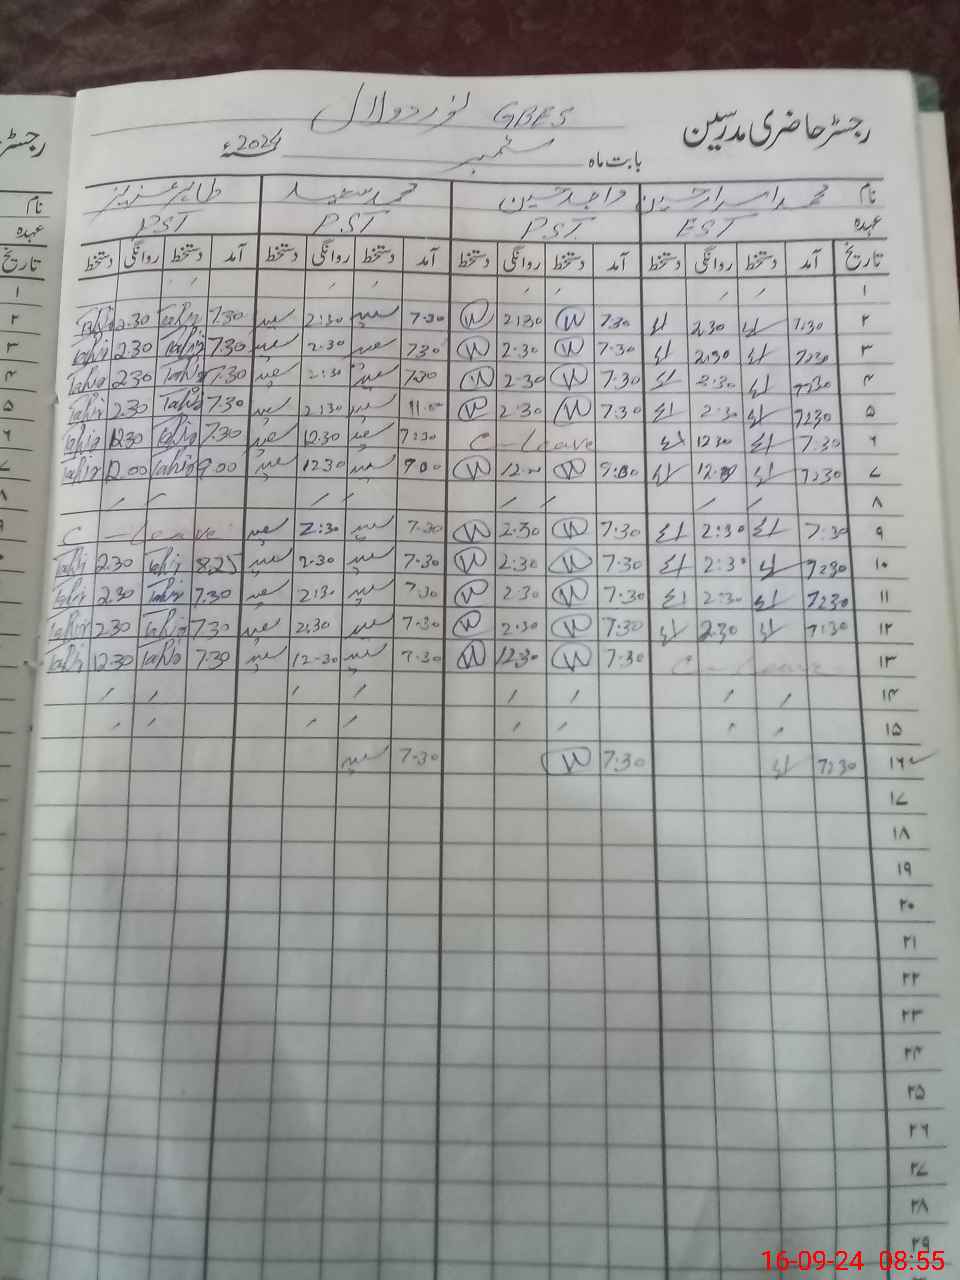 رجسٹر حاضری مدرسین GBES نور دولال
بابت ماہ ستمبر 2024ء
نام محمد اسرار حسین واجد حسین محمد سعید طاہر عزیز
عہدہ EST PST PST PST
تاریخ آمد دستخط روانگی دستخط آمد دستخط روانگی دستخط آمد دستخط روانگی دستخط آمد دستخط روانگی دستخط
۱
۲ 7:30 2:30 7:30 W 2:30 W 7:30 سعید 2:30 سعید 7:30 Tahir 2:30 Tahir
۳ 7:30 2:30 7:30 W 2:30 W 7:30 سعید 2:30 سعید 7:30 Tahir 2:30 Tahir
۴ 7:30 2:30 7:30 W 2:30 W 7:30 سعید 2:30 سعید 7:30 Tahir 2:30 Tahir
۵ 7:30 2:30 7:30 W 2:30 W 11:00 سعید 2:30 سعید 7:30 Tahir 2:30 Tahir
۶ 7:30 12:30 C-leave 7:30 سعید 12:30 سعید 7:30 Tahir 12:30 Tahir
۷ 7:30 12:00 9:00 W 12:00 W 9:00 سعید 12:30 سعید 9:00 Tahir 12:00 Tahir
۸
۹ 7:30 2:30 7:30 W 2:30 W 7:30 سعید 2:30 سعید C-leave
۱۰ 7:30 2:30 7:30 W 2:30 W 7:30 سعید 2:30 سعید 8:25 Tahir 2:30 Tahir
۱۱ 7:30 2:30 7:30 W 2:30 W 7:30 سعید 2:30 سعید 7:30 Tahir 2:30 Tahir
۱۲ 7:30 2:30 7:30 W 2:30 W 7:30 سعید 2:30 سعید 7:30 Tahir 2:30 Tahir
۱۳ C-leave 7:30 W 12:30 W 7:30 سعید 12:30 سعید 7:30 Tahir 12:30 Tahir
۱۴
۱۵
۱۶ 7:30 7:30 W 7:30 سعید
۱۷
۱۸
۱۹
۲۰
۲۱
۲۲
۲۳
۲۴
۲۵
۲۶
۲۷
۲۸
۲۹
16-09-24 08:55